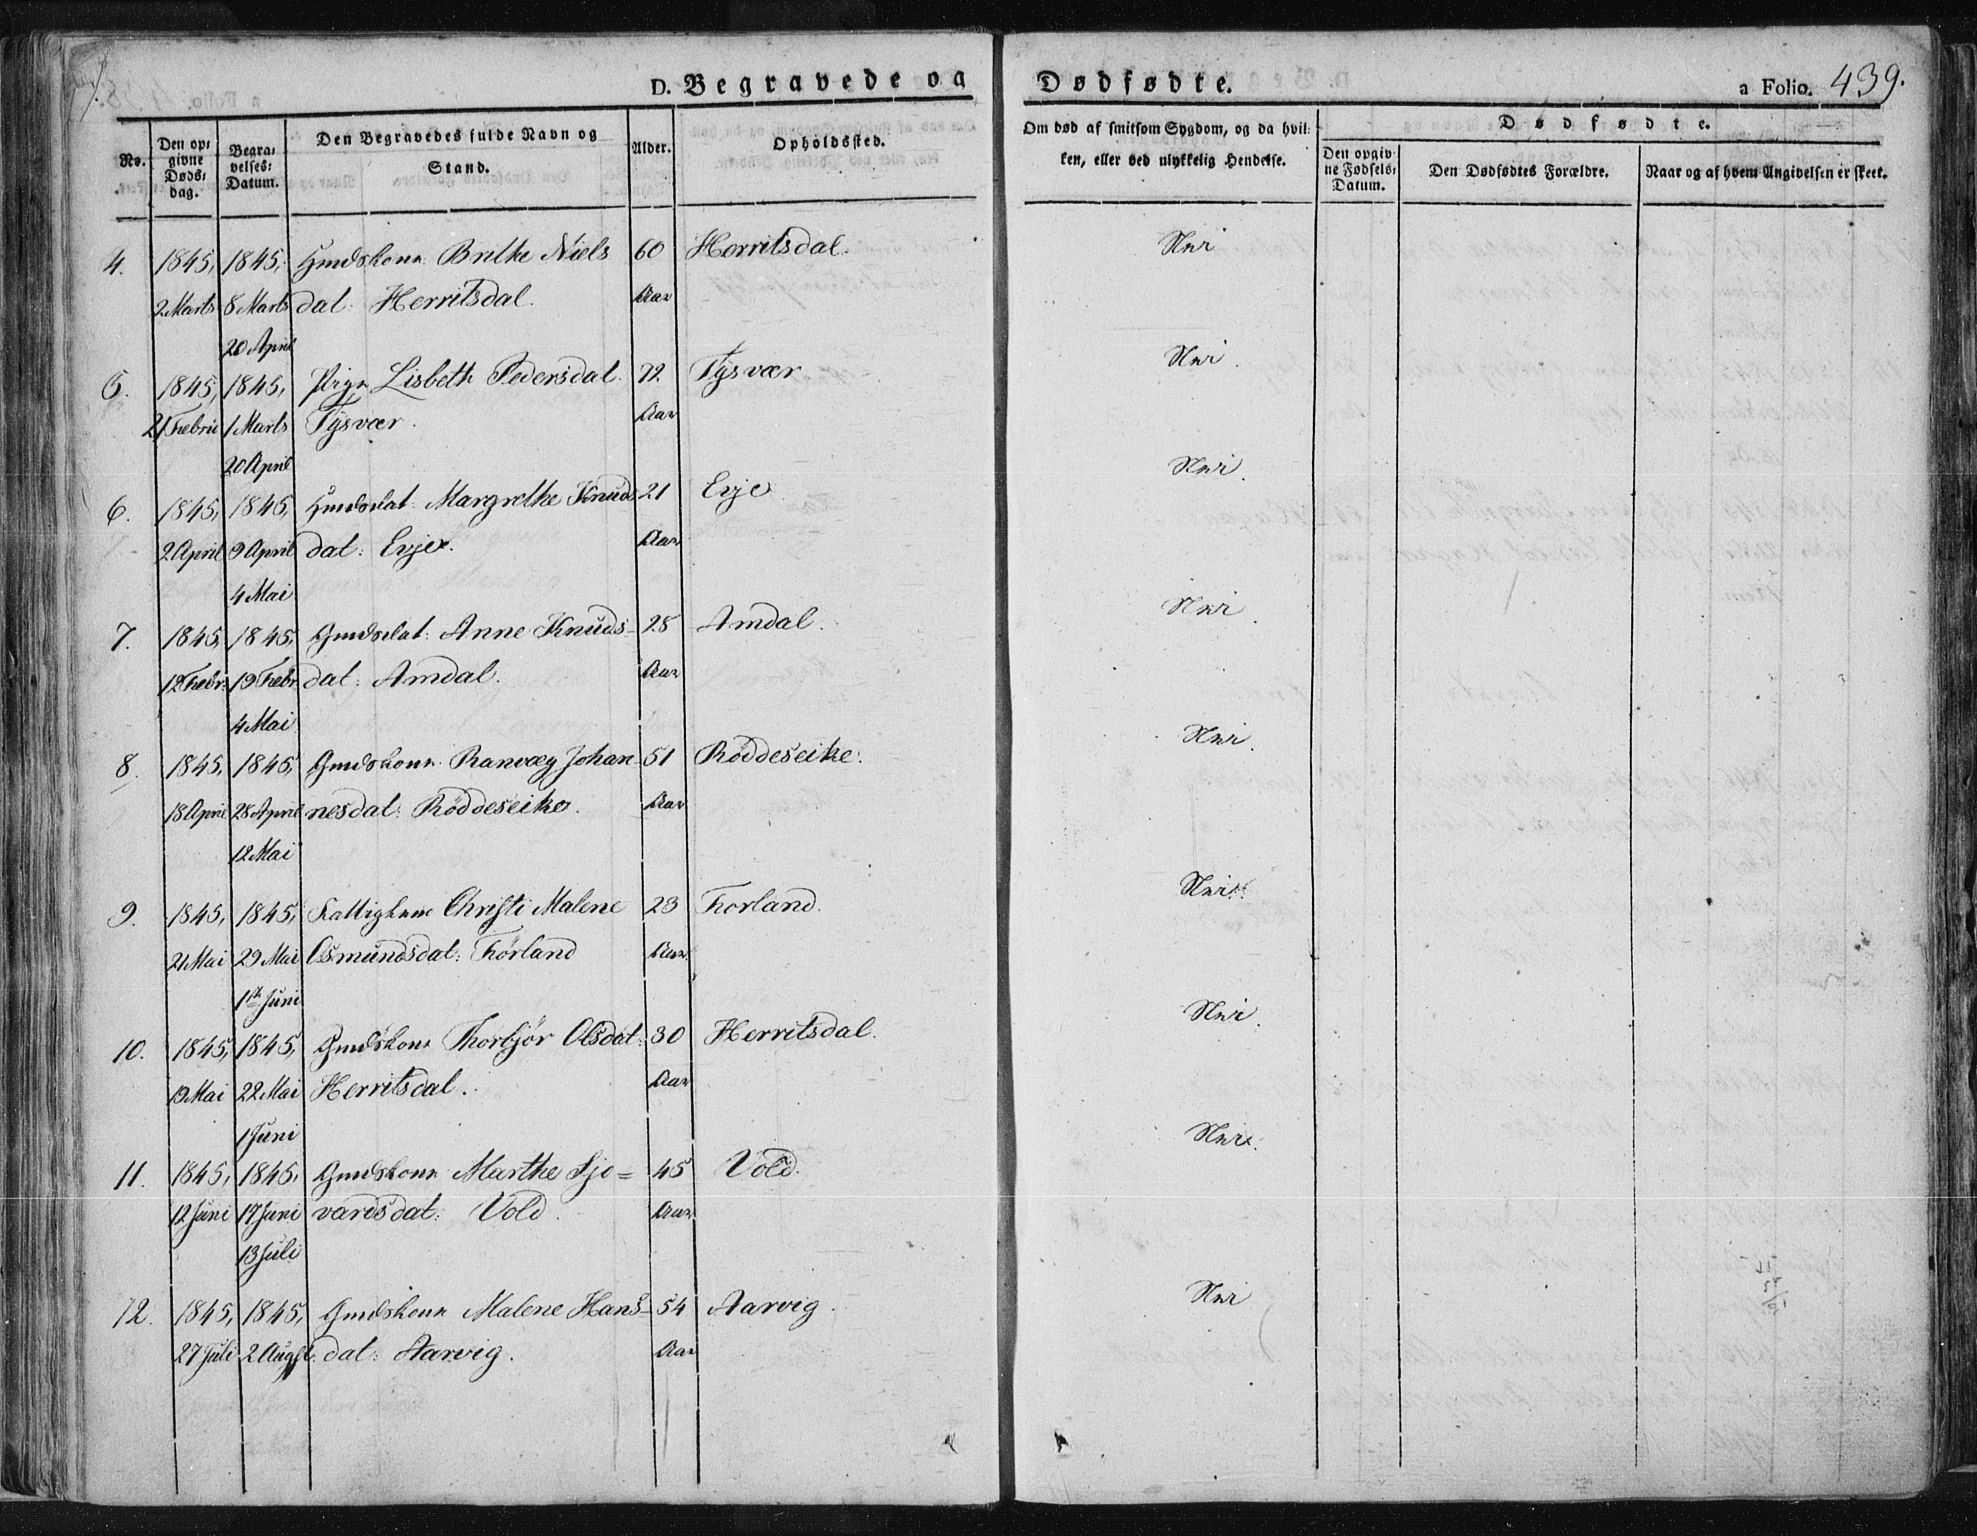 D. Begravede og Dødfødte. a Folio. 439.
No.
Den op-
givne
Døds-
dag.
Begra-
velses-
Datum.
Den Begravedes fulde Navn og
Stand.
Alder.
Opholdssted.
Om død af smitsom Sygdom, og da hvil-
ken, eller ved ulykkelig Hendelse.
Dødfødte.
Den opgiv-
ne Fødsels-
Datum.
Den Dødfødtes Forældre.
Naar og af hvem Angivelsen er skeet.
4. 1845, 1845, Gmdskone Brithe Niels 60 Herritsdal. Nei
2 Marts 8 Marts dat: Herritsdal. Aar
20 April
5. 1845, 1845, Pige Lisbeth Pedersdat. 72 Tysvær Nei.
21 Febru 1 Marts Tysvær. Aar
20 April
6. 1845, 1845, Gmdsdat: Margrethe Knuds 21 Evje Nei.
2 April 9 April dat: Evje. Aar
4 Mai
7. 1845, 1845, Gmdsdat: Anne Knuds- 28 Amdal. Nei.
12 Febr. 19 Febr. dat: Amdal. Aar
4 Mai
8. 1845, 1845, Gmdskone Ranvæg Johan- 51 Røddeseike. Nei.
18 April 28 April nesdat: Røddeseike. Aar
12 Mai
9. 1845, 1845, Fattiglem Christi Malene 23 Forland. Nei.
21 Mai 29 Mai Osmundsdat: Førland Aar
1ste Juni
10. 1845, 1845, Gmdskone Thorbjør Olsdat: 30 Herritsdal. Nei.
19 Mai 22 Mai Herritsdal. Aar
1 Juni
11. 1845, 1845, Gmdskone Marthe Sjo= 45 Vold. Nei.
12 Juni 17 Juni vardsdat: Vold. Aar
13 Juli
12. 1845, 1845, Gmdskone Malene Hans- 54 Aarvig. Nei
27 Juli 2 Augst. dat: Aarvig. Aar